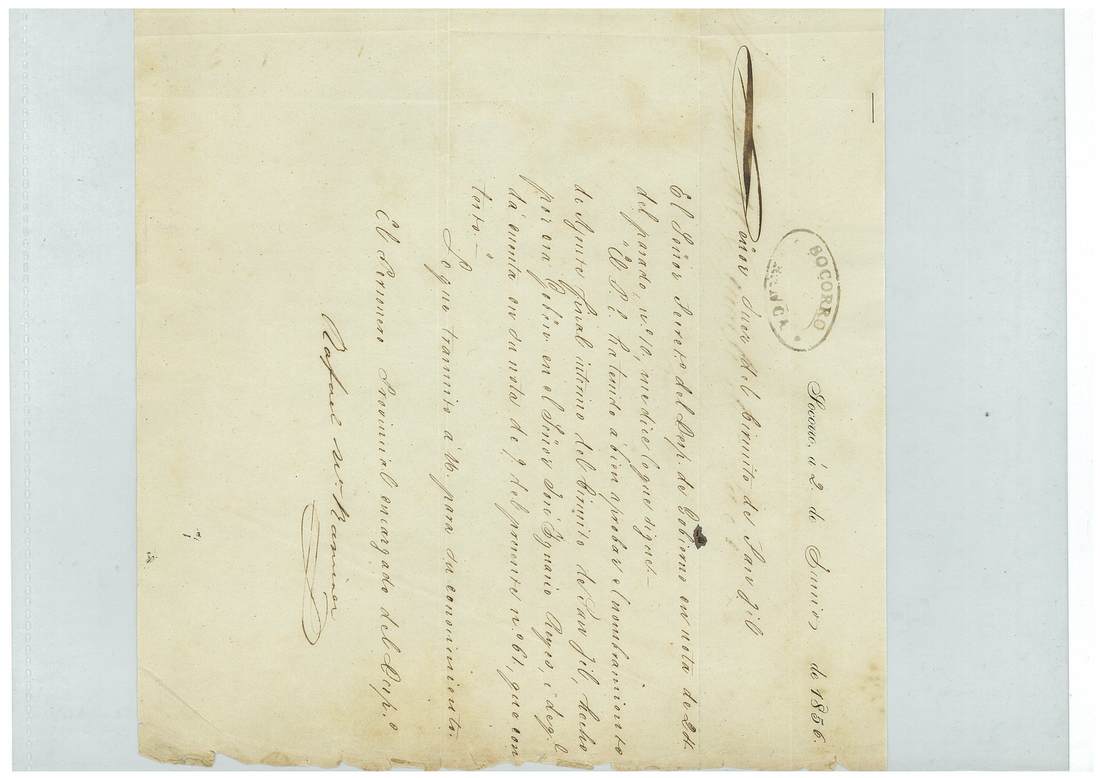 SOCORRO
FRANCA
Socorro, á 2 de Junio de 1856.
Señor Juez del Circuito de San Jil
El Señor Secreto. del Desp. de Gobierno en nota de 24.
del pasado, n.º 10, me dice lo que sigue:—
"El P. E. ha tenido á bien aprobar el nombramiento
de Ajente fiscal interino del Circuito de San Jil, hecho
por esa Gobn. en el Señor José Ignacio Reyes, de q. U.
dá cuenta en su nota de 9 del presente n.º 61, que con
testo.—"
Lo que trasmito á U. para su conocimiento.
El Personero Provincial encargado del Desp.o
Rafael Ramirez